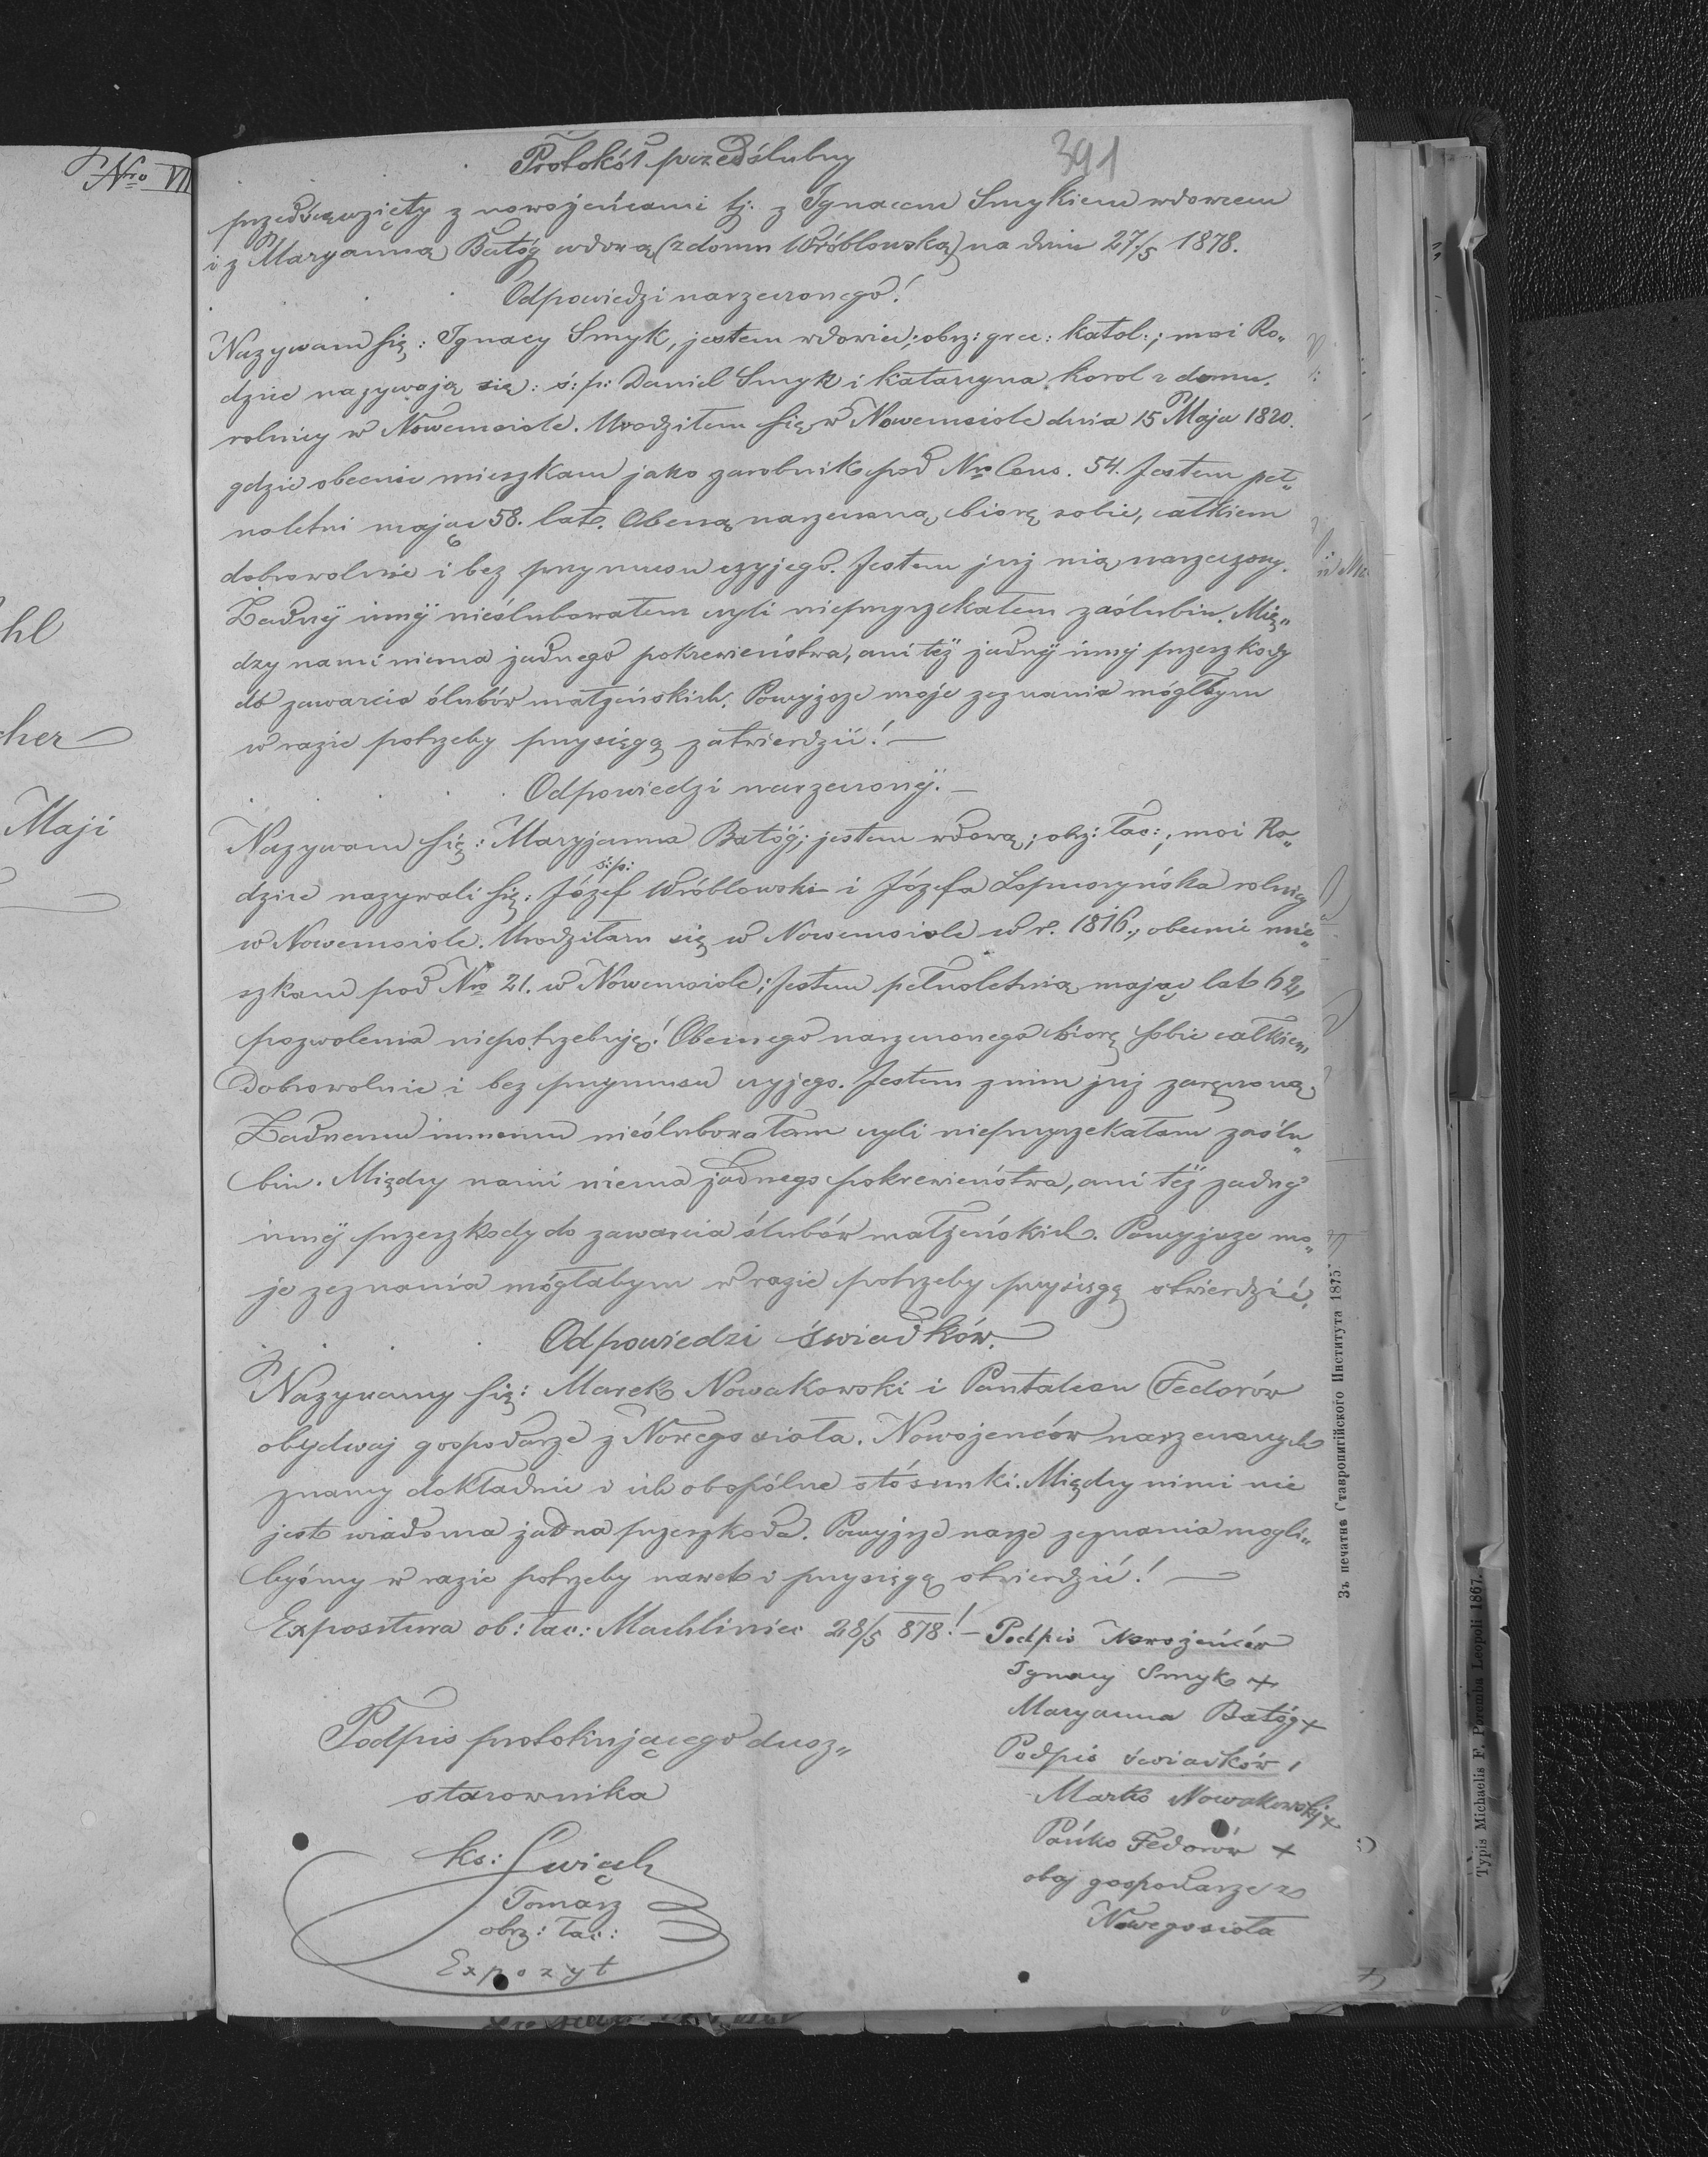 391
Protokół przedślubny
przedsięwzięty z nowożeńcami tj. z Ignacem Smykiem wdowcem
i z Maryanną Batóg wdową (z domu Wróblowską) na dniu 27/5 1878.
Odpowiedzi narzeczonego!
Nazywam się: Ignacy Smyk, jestem wdowiec; obrz: grec: katol:; moi Ro„
dzice nazywają się: ś:p: Daniel Smyk i Katarzyna Korol z domu.
rolnicy w Nowemsiole. Urodziłem się w Nowemsiole dnia 15 Maja 1820.
gdzie obecnie mieszkam jako zarobnik pod Nro Cons. 54. Jestem peł„
noletni mając 58. lat. Obecną narzeczoną biorę sobie, całkiem
dobrowolnie i bez przymusu czyjego. Jestem już nią narzeczony.
Żadnÿ innÿ nieślubowałem czyli nieprzyrzekałem zaślubin. Mię„
dzy nami niema żadnego pokrewieństwa, ani téż żadnÿ innÿ przeszkody
do zawarcia ślubów małżeńskich. Powyższe moje zeznania mógłbym
w razie potrzeby przysięgą zatwierdzić! —
Odpowiedzi narzeczonÿ. —
Nazywam się: Maryjanna Batóg; jestem wdową; obrz: łac:; moi Ro„
dzice nazywali się: ś:p: Józef Wróblowski i Józefa Łopuszyńska rolnicy
w Nowemsiole. Urodziłam się w Nowemsiole w r. 1816., obecnie mie„
szkam pod Nro 21. w Nowemsiole; Jestem pełnoletnią mając lat 62,
pozwolenia niepotrzebuję! Obecnego narzeczonego biorę sobie całkiem
dobrowolnie i bez przymusu czyjego. Jestem z nim już zaręczoną,
Żadnemu innemu nieślubowałam czyli nieprzyrzekałam zaślu„
bin. Między nami niema żadnego pokrewieństwa, ani téż żadnÿ
innÿ przeszkody do zawarcia ślubów małżeńskich. Powyższe mo„
je zeznania mógłabym w razie potrzeby przysięgą stwierdzić.
Odpowiedzi świadków.
Nazywamy się: Marek Nowakowski i Pantaleon Fedorów
obydwaj gospodarze z Nowegosioła. Nowożeńców narzeczonych
znamy dokładnie i ich obopólne stósunki. Między nimi nie
jest wiadoma żadna przeszkoda. Powyższe nasze zeznania mogli„
byśmy w razie potrzeby nawet i przysięgą stwierdzić! —
Expositura ob: łac: Machliniec 28/5 878! —
Podpis Nowożeńców
Ignacy Smyk +
Maryanna Batóg +
Podpis świadków
Marko Nowakowski +
Pańko Fedorów +
obaj gospodarze z
Nowegosioła
Podpis protokującego dusz„
starownika
ks: Ćwiąch
Tomasz
obrz: łac:
Expozyt
Nro VII
hl
cher
Maji
Зъ печатнѣ Ставропигійского Института 1875
Typis Michaelis F. Poremba Leopoli 1867.